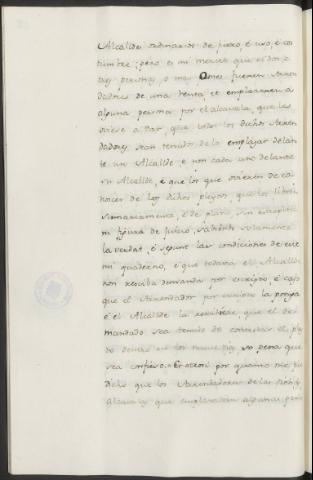 Alcaldes ordinarios de fuero, é uso, é cos
tumbre; pero es mi merced que si dos, o
tres personas, o mas Omes fueren Arren
dadores de una renta, et emplazaren á
alguna persona por el alcavala, que les
oviere á dar, que todos los dichos Arren
dadores sean tenudos de lo emplazar delan
te un Alcallde, é non cada uno delante
su Alcallde, é que los que ovieren de co
nocer de los dichos pleytos, que los libren
sumariamente, é de plano, sin escripto
ni figura de juicio, sabiendo solamente
la verdat, é segunt las condiciones de este
mi quaderno, é que todavia el Alcallde
non resciba demanda por escripto, é caso
que el Arrendador por escripto la ponga
é el Alcallde la rescibiere, que el de
mandado sea tenudo de contestar el pley
to dentro en los nueve dias, so pena que
sea confieso. Et otrosi por quanto me fue
dicho que los Arrendadores de las dichas
Alcavalas que emplazaban algunas perso